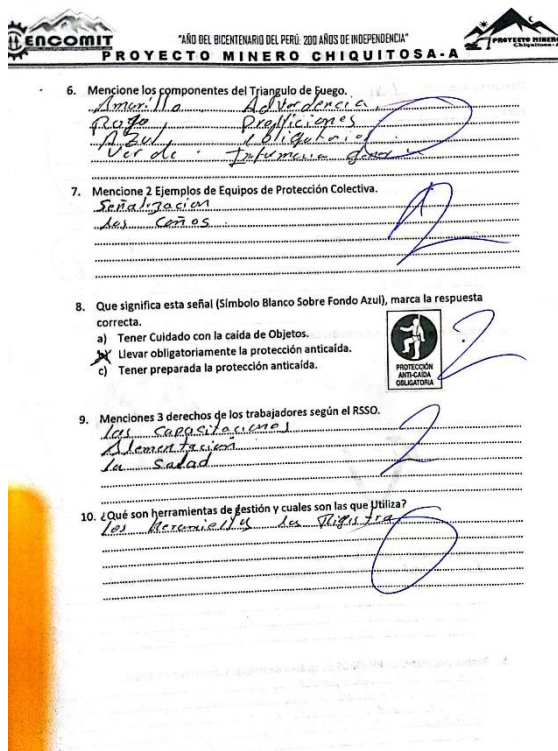 ENCOMIT
"AÑO DEL BICENTENARIO DEL PERÚ: 200 AÑOS DE INDEPENDENCIA"
PROYECTO MINERO CHIQUITOSA-A
PROYECTO MINERO
Chiquitosa-A
6. Mencione los componentes del Triangulo de Fuego.
Amarillo Advardencia
Rogo Profiiciones
Azul obligatorio
Verde :
7. Mencione 2 Ejemplos de Equipos de Protección Colectiva.
Señalizacion
los Coños
2
8. Que significa esta señal (Símbolo Blanco Sobre Fondo Azul), marca la respuesta
correcta.
a) Tener Cuidado con la caída de Objetos.
b) Llevar obligatoriamente la protección anticaída.
c) Tener preparada la protección anticaída.
PROTECCIÓN
ANTI-CAÍDA
OBLIGATORIA
2
9. Menciones 3 derechos de los trabajadores según el RSSO.
las Capacitaciones
Alementación
la Salad
2
10. ¿Qué son herramientas de gestión y cuales son las que Utiliza?
0